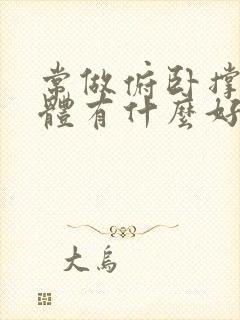 常做俯卧撑
體有什麼好
大烏